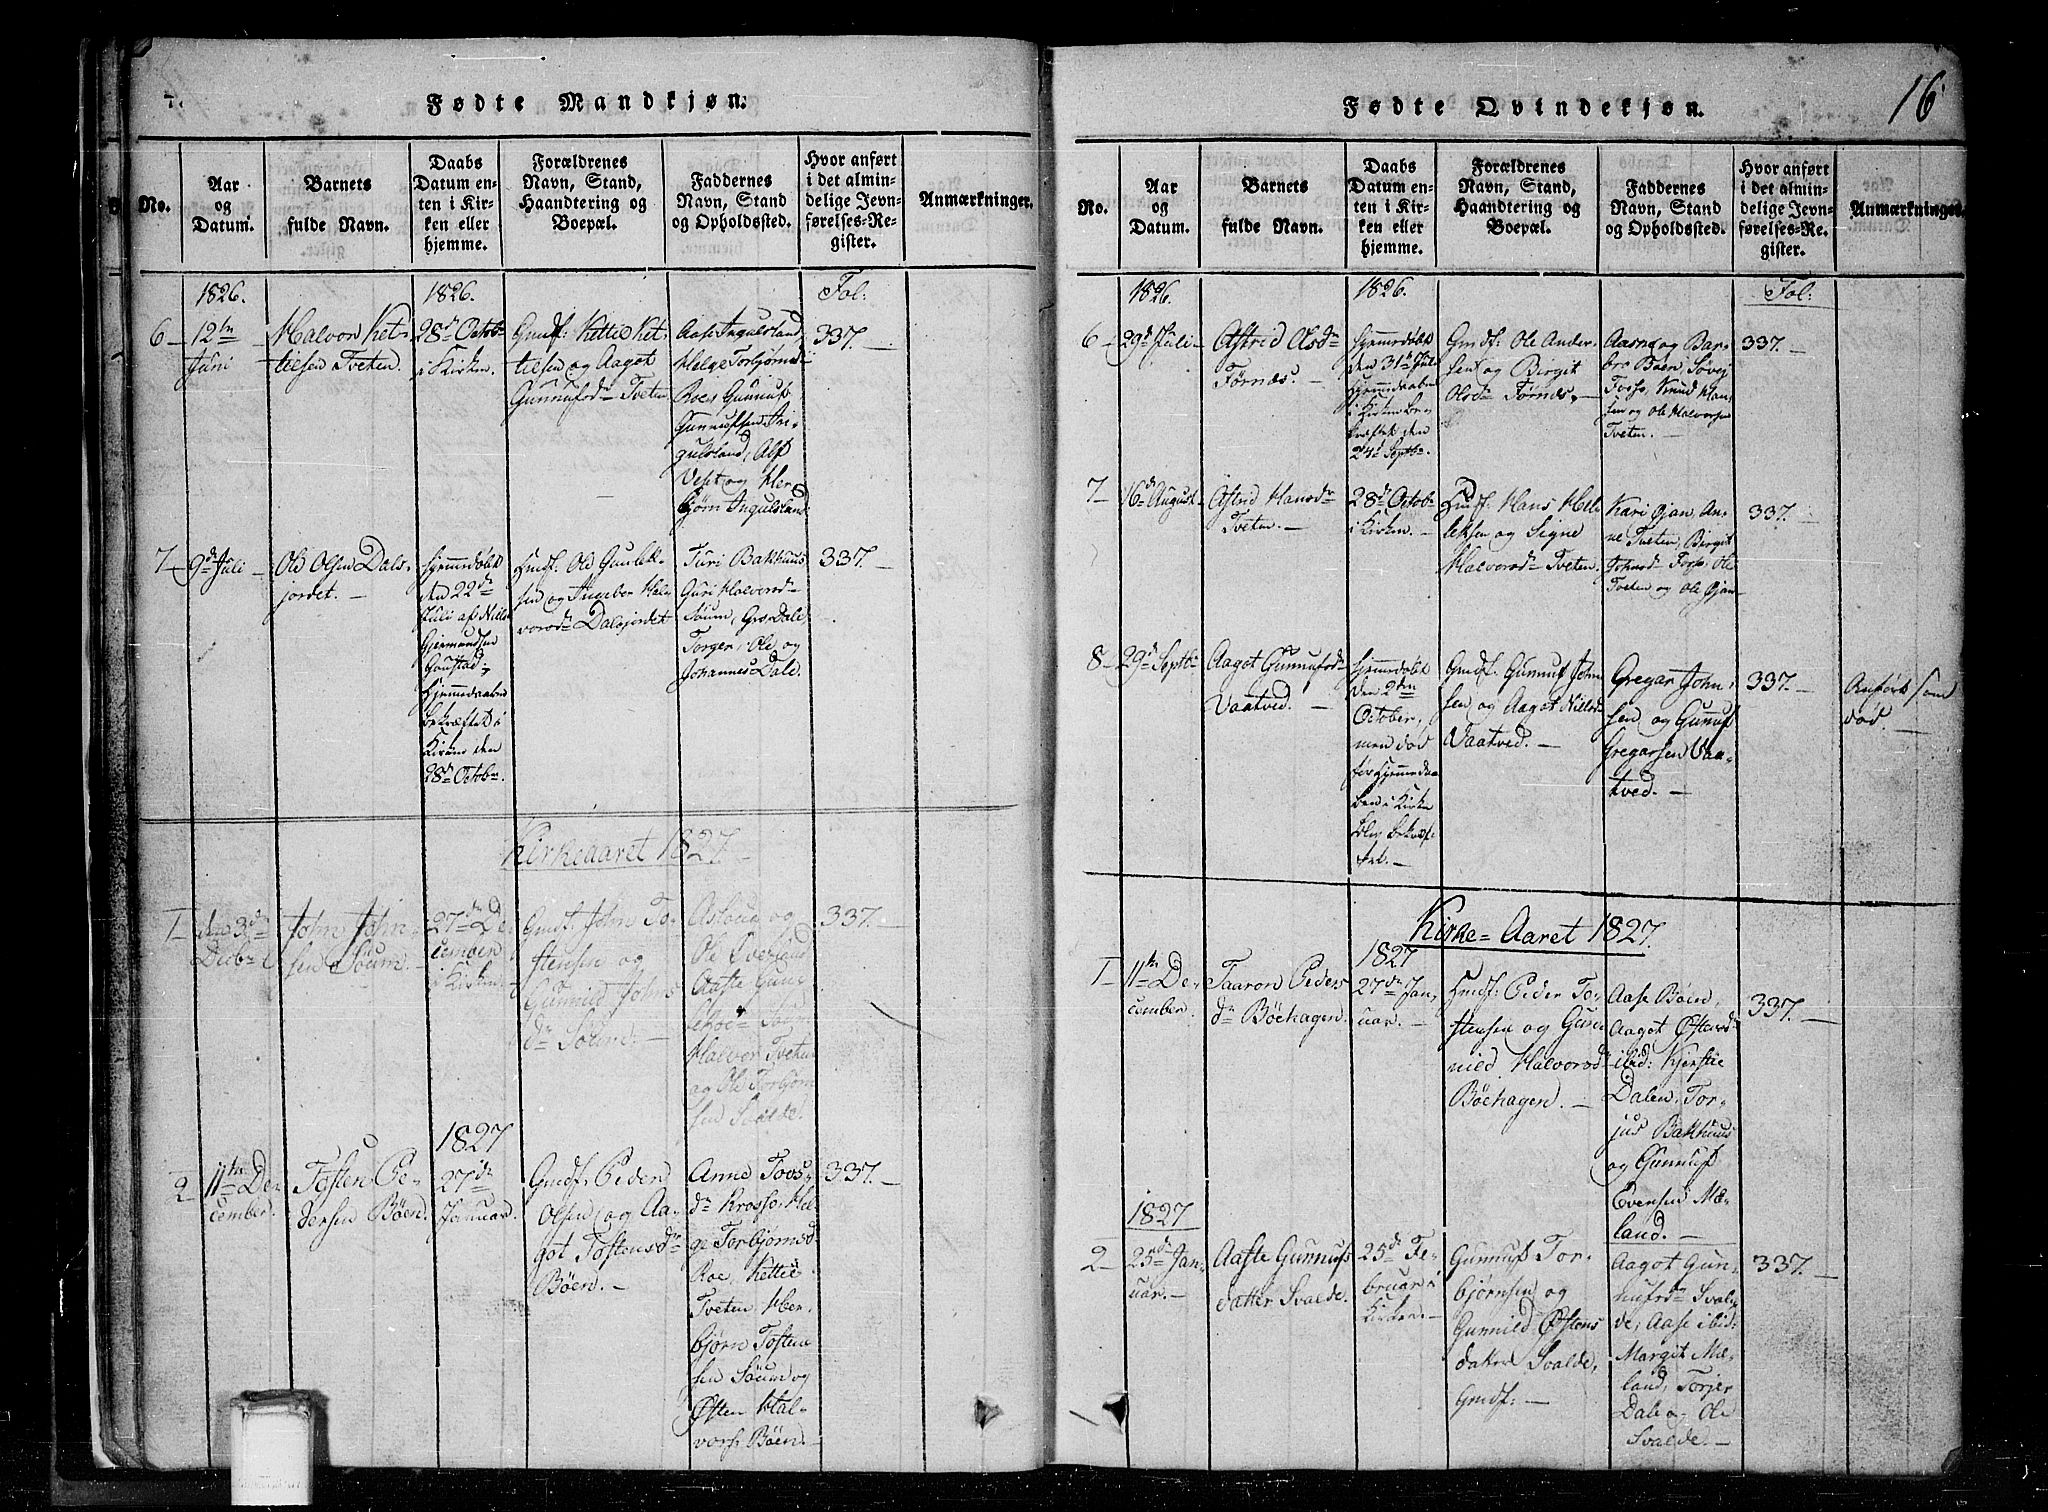 Fødte Mandkjøn.
No.
Aar
og
Datum.
Barnets
fulde Navn.
Daabs
Datum en-
ten i Kir-
ken eller
hjemme.
Forældrenes
Navn, Stand,
Haandtering og
Boepæl.
Faddernes
Navn, Stand
og Opholdssted.
Hvor anført
i det almin-
delige Jevn-
førelses-Re-
gister.
Anmærkninger.
1826.
1826.
Fol:
6 –
12te
Juni
Halvor Ket-
tilsen Tveten.
28de Octob
i Kirken.
Gmdf: Kettil Ket-
tilsen og Aagot
Gunnufsdr Tveten
Aase Ingulsland,
Helge Torbjørnsd
Roes Gunnuf
Gunnufsen In-
gulsland, Alf
Veset og Her-
bjørn Ingulsland
337. –
7 –
9de Juli –
Ole Olsen Dals-
jordet. –
Hjemmedøbt
den 22de
Juli af Niels
Gjermundsen
Goustad;
Hjemmedaaben
bekræftet i
Kirken den
28de Octobr.
Hmdf: Ole Gunlek-
sen og Ingebor Hal-
vorsdr Dalsjordet
Turi Bakhuus
Guri Halvorsd
Söum, Gro Dale,
Torger, Ole og
Johannes Dale.
337. –
Kirkeaaret 1827. –
1 –
den 3de
Decbr
John John-
sen Söum. –
27de De-
cember
i Kirken.
Gmdf: John To-
stensen og
Gunnild Johns
dr Söum. –
Aslaug og
Ole Överland
Aaste Gun-
Halvor Tveten
og Ole Torbjørn
sen Svalde.
337. –
1827
2
11te De-
cember.
Tosten Pe-
dersen Böen.
27de
Januar.
Gmdf: Peder
Olsen og Aa-
got Tostensdr
Böen. –
Anne Tovs-
dr Krosso, Hel-
ge Torbjørnsd
Roe, Kettil
Tveten, Her-
bjørn Tosten
sen Söum og
Østen Hal-
vors: Böen. –
337. –
Fødte Qvindekjøn.
16
No.
Aar
og
Datum.
Barnets
fulde Navn.
Daabs
Datum en-
ten i Kir-
ken eller
hjemme.
Forældrenes
Navn, Stand,
Haandtering og
Boepæl.
Faddernes
Navn, Stand
og Opholdssted.
Hvor anført
i det almin-
delige Jevn-
førelses-Re-
gister.
Anmærkninger.
1826.
1826.
Fol:
6 –
29de Juli –
Astrid Olsdr
Førnæs. –
Hjemmedøbt
den 31te Juli
Hjemmedaaben
i Kirken be-
kræftet den
24de Septbr.
Gmdf: Ole Ander-
sen og Birgit
Olsdr Førnæs. –
Aasne og Bar-
bro Böen, Søvej
Foss, Knud Han-
sen og Ole Halvorsen
Tveten. –
337. –
7 –
16de August –
Astrid Hansdr
Tveten. –
28de Octob
i Kirken. –
Hmdf: Hans Hel-
leksen og Signe
Halvorsdr Tveten.
Kari Gjan, An-
ne Tveten, Birgit
Johnsd Foss, Ole
Tveten og Ole Gjan –
337. –
8 –
29de Septbr
Aagot Gunnufsdr
Vaatved. –
Hjemmedøbt
den 2den
October,
men död
før Hjemmedaa-
ben i Kirken
blev bekræf-
tet. –
Gmdf: Gunnuf John
sen og Aagot Nielsd
Vaatved. –
Gregar John-
sen og Gunnuf
Gregarsen Vaa-
tved. –
337. –
Anført som
död. –
Kirke-Aaret 1827.
1827
1 –
11te De-
cember.
Taaron Peders
dr Böehagen.
27de Jan-
uar. –
Hmdf: Peder To-
stensen og Gun-
nild Halvorsd
Böehagen. –
Aase Böen,
Aagot Østensdr
ibid: Kjerstie
Dalen, Tor-
jus Bakhuus
og Gunnuf
Evensen Mæ-
land. –
337. –
1827
2 –
25de Jan-
uar. –
Aaste Gunnufs
datter Svalde.
25de Fe-
bruar i
Kirken. –
Gunnuf Tor-
bjørnsen og
Gunnild Østens
datter Svalde,
Gmdf: –
Aagot Gun-
nufsdr Sval-
de, Aase ibid:
Margit Mæ-
land, Torjer
Dale og Ole
Svalde. –
337. –